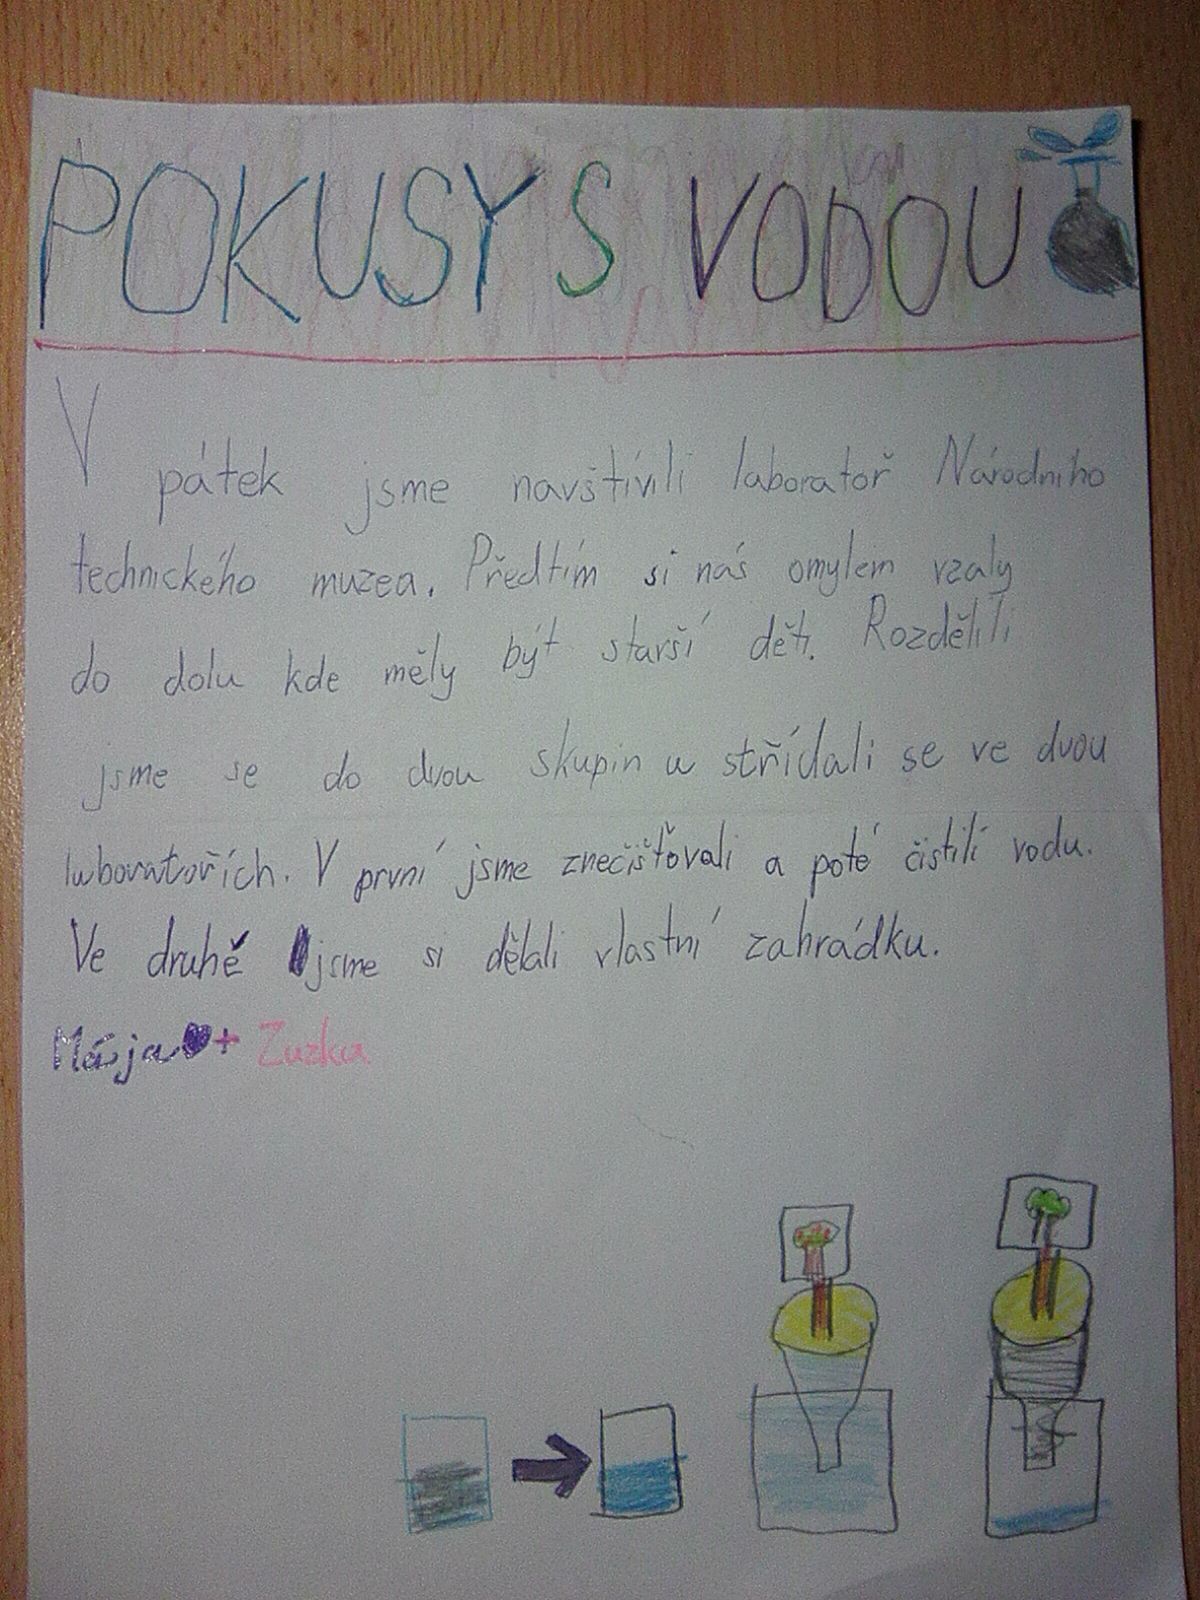 POKUSY S VODOU
V pátek jsme navštívili laboratoř Národního
technického muzea. Předtím si nás omylem vzaly
do dolu kde měly být starší děti. Rozdělili
jsme se do dvou skupin a střídali se ve dvou
laboratořích. V první jsme znečišťovali a poté čistili vodu.
Ve druhé jsme si dělali vlastní zahrádku.
+ Zuzka